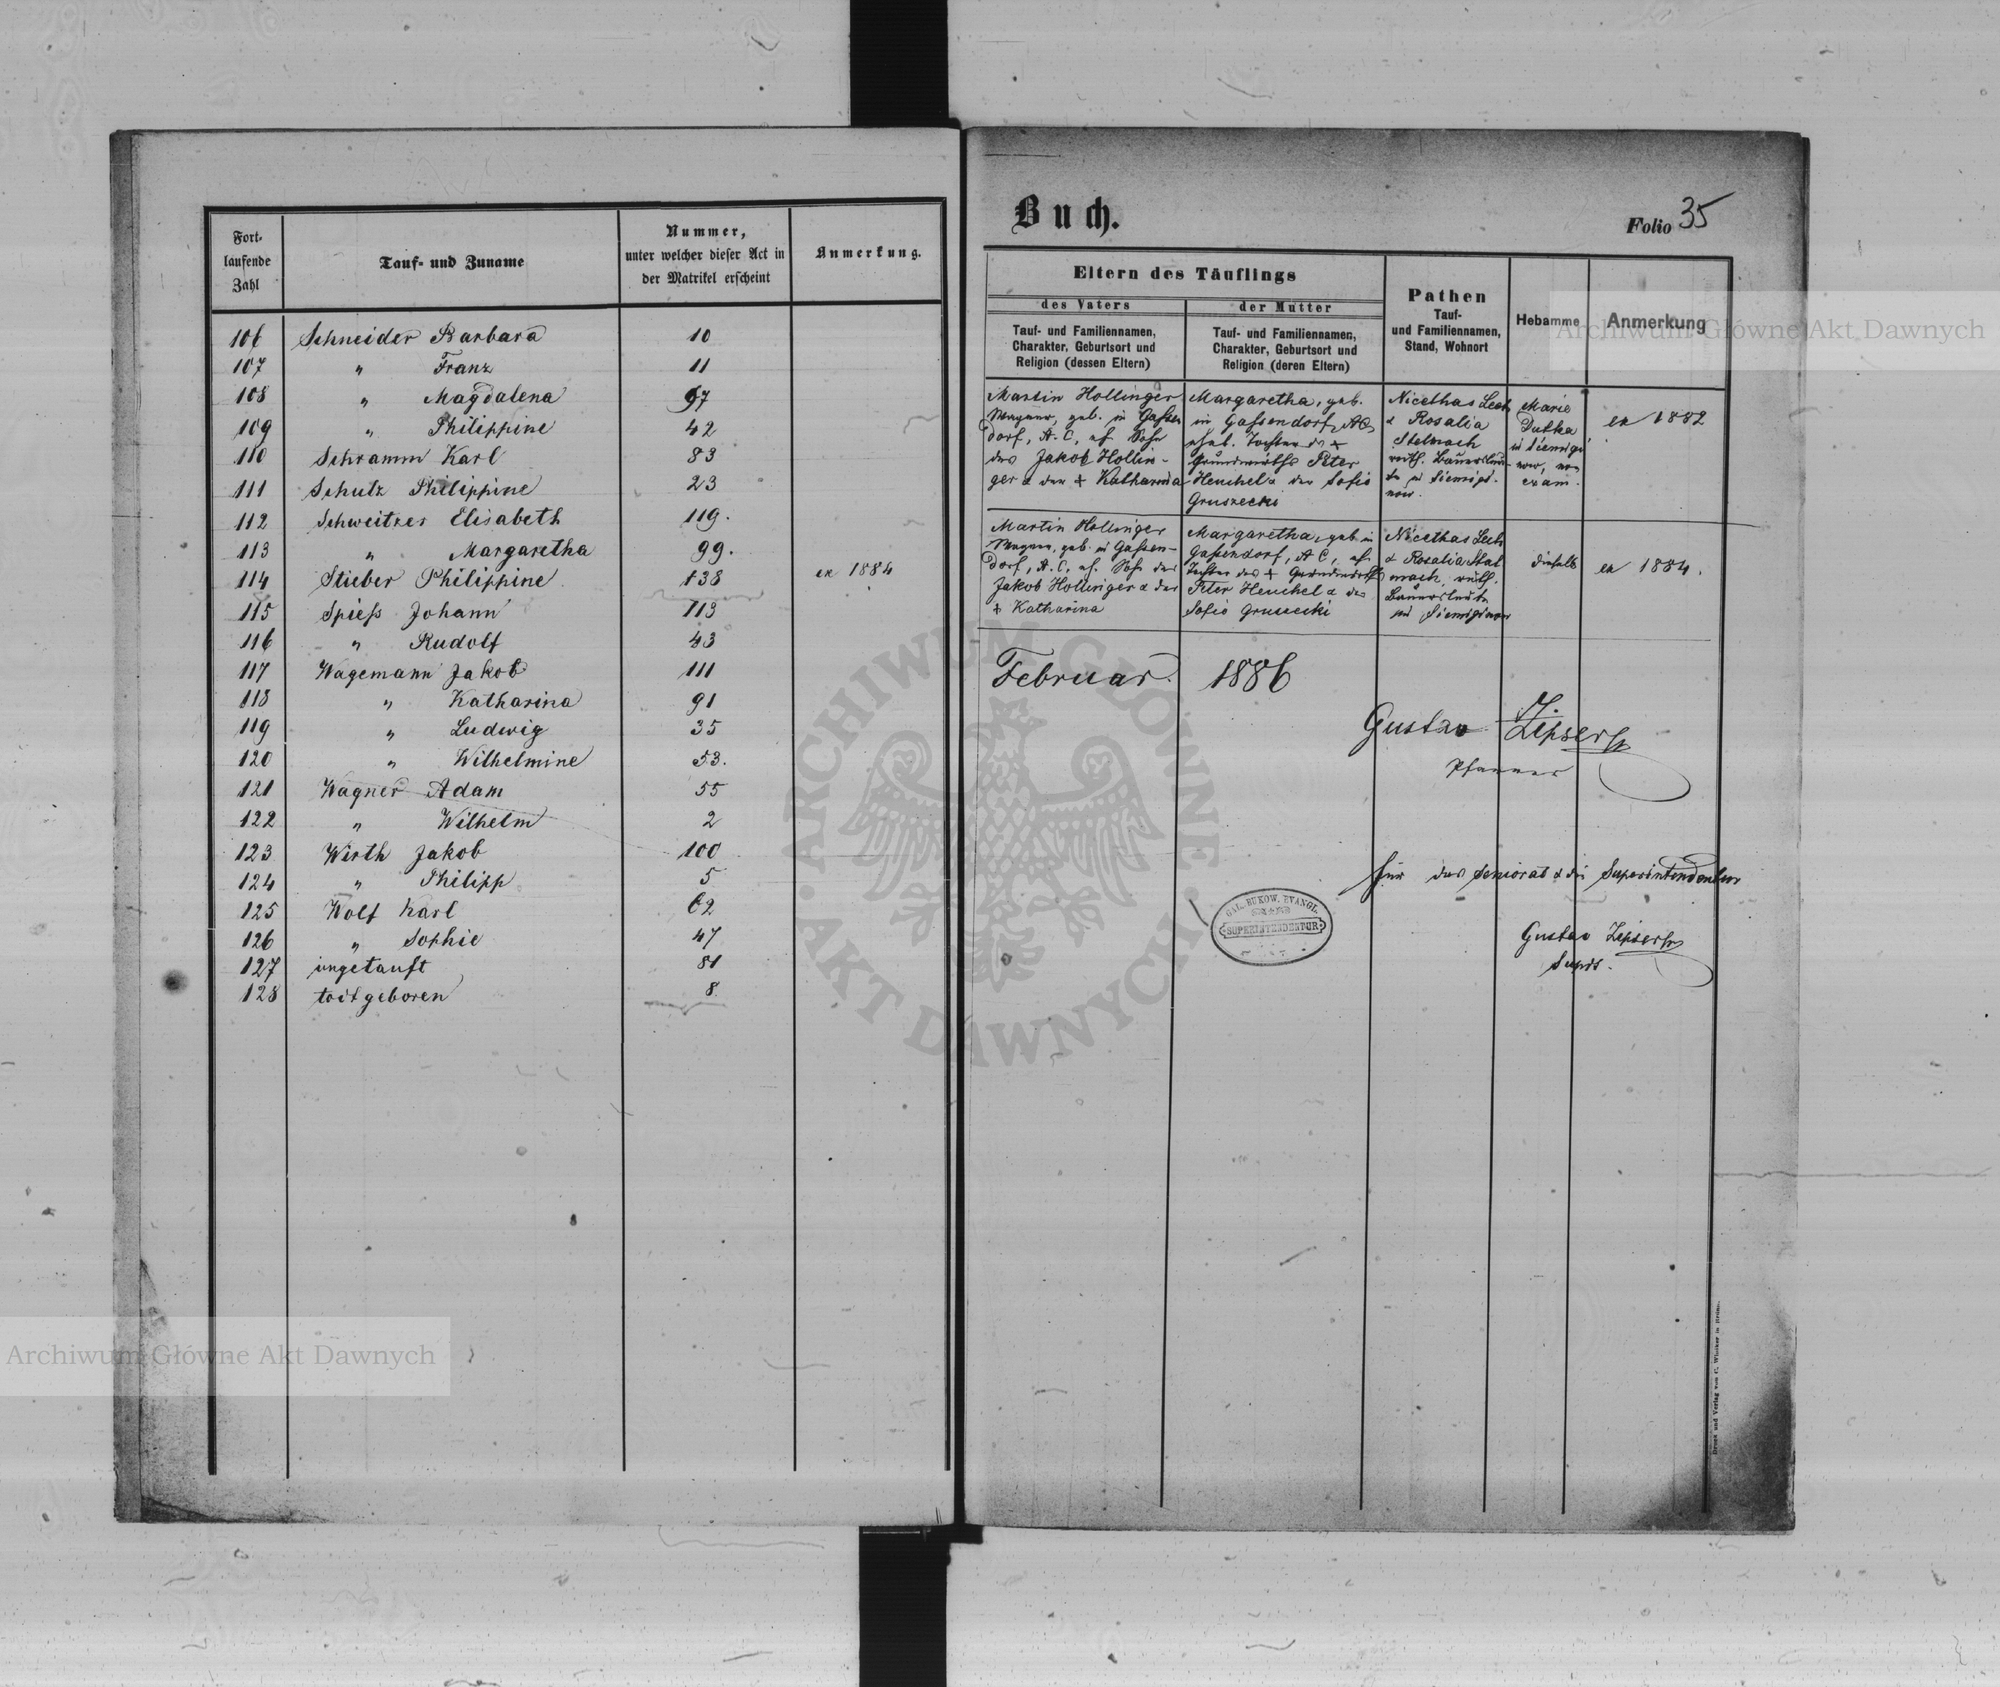 Fort-
laufende
Zahl
Tauf- und Zuname
Nummer,
unter welcher dieser Act in
der Matrikel erscheint
Anmerkung.
106 Schneider Barbara 10
107 " Franz 11
108 " Magdalena 97
109 " Philippine 42
110 Schramm Karl 83
111 Schulz Philippine 23
112 Schweitzer Elisabeth 119.
113 " Margaretha 99.
114 Stieber Philippine 138 ex 1884
115 Spieß Johann 113
116 " Rudolf 43
117 Wagemann Jakob 111
118 " Katharina 91
119 " Ludwig 35
120 " Wilhelmine 53.
121 Wagner Adam 55
122 " Wilhelm 2
123 Wirth Jakob 100
124 " Philipp 5
125 Wolf Karl 62
126 " Sophie 47
127 ungetauft 81
128 todtgeboren 8.
Buch.
Folio 35
Eltern des Täuflings
des Vaters
Tauf- und Familiennamen,
Charakter, Geburtsort und
Religion (dessen Eltern)
der Mutter
Tauf- und Familiennamen,
Charakter, Geburtsort und
Religion (deren Eltern)
Pathen
Tauf-
und Familiennamen,
Stand, Wohnort
Hebamme
Anmerkung
Martin Hollinger
Wagner, geb. in Gassen
dorf, A. C, eh. Sohn
des Jakob Hollin-
ger & der + Katharina
Margaretha, geb.
in Gassendorf, AC,
ehel. Tochter des +
Grundwirths Peter
Heuchel & der Sofie
Gruszecki
Nicethas Lech
& Rosalia
Stelmach
ruth. Bauersleu-
te in
Marie
Dutka
in
exam.
ex 1882
Martin Hollinger
Wagner, geb. in Gassen-
dorf, A. C, eh. Sohn des
Jakob Hollinger & der
+ Katharina
Margaretha, geb. in
Gassendorf, A C, eh.
Tochter des + Grundwirths
Peter Heuchel & der
Sofie Gruszecki
Nicethas Lech
& Rosalia Stel
mach, ruth.
Bauersleute
in
dieselbe
ex 1884.
Februar 1886
Gustav Zipser
Pfarrer
für das Seniorat & die Superintendentur
GAL. BUKOW. EVANGL.
SUPERINTENDENTUR
Gustav Zipser
Supdt.
Druck und Verlag von C.
ARCHIWUM GŁÓWNE
AKT DAWNYCH
Archiwum Główne Akt Dawnych
Archiwum Główne Akt Dawnych